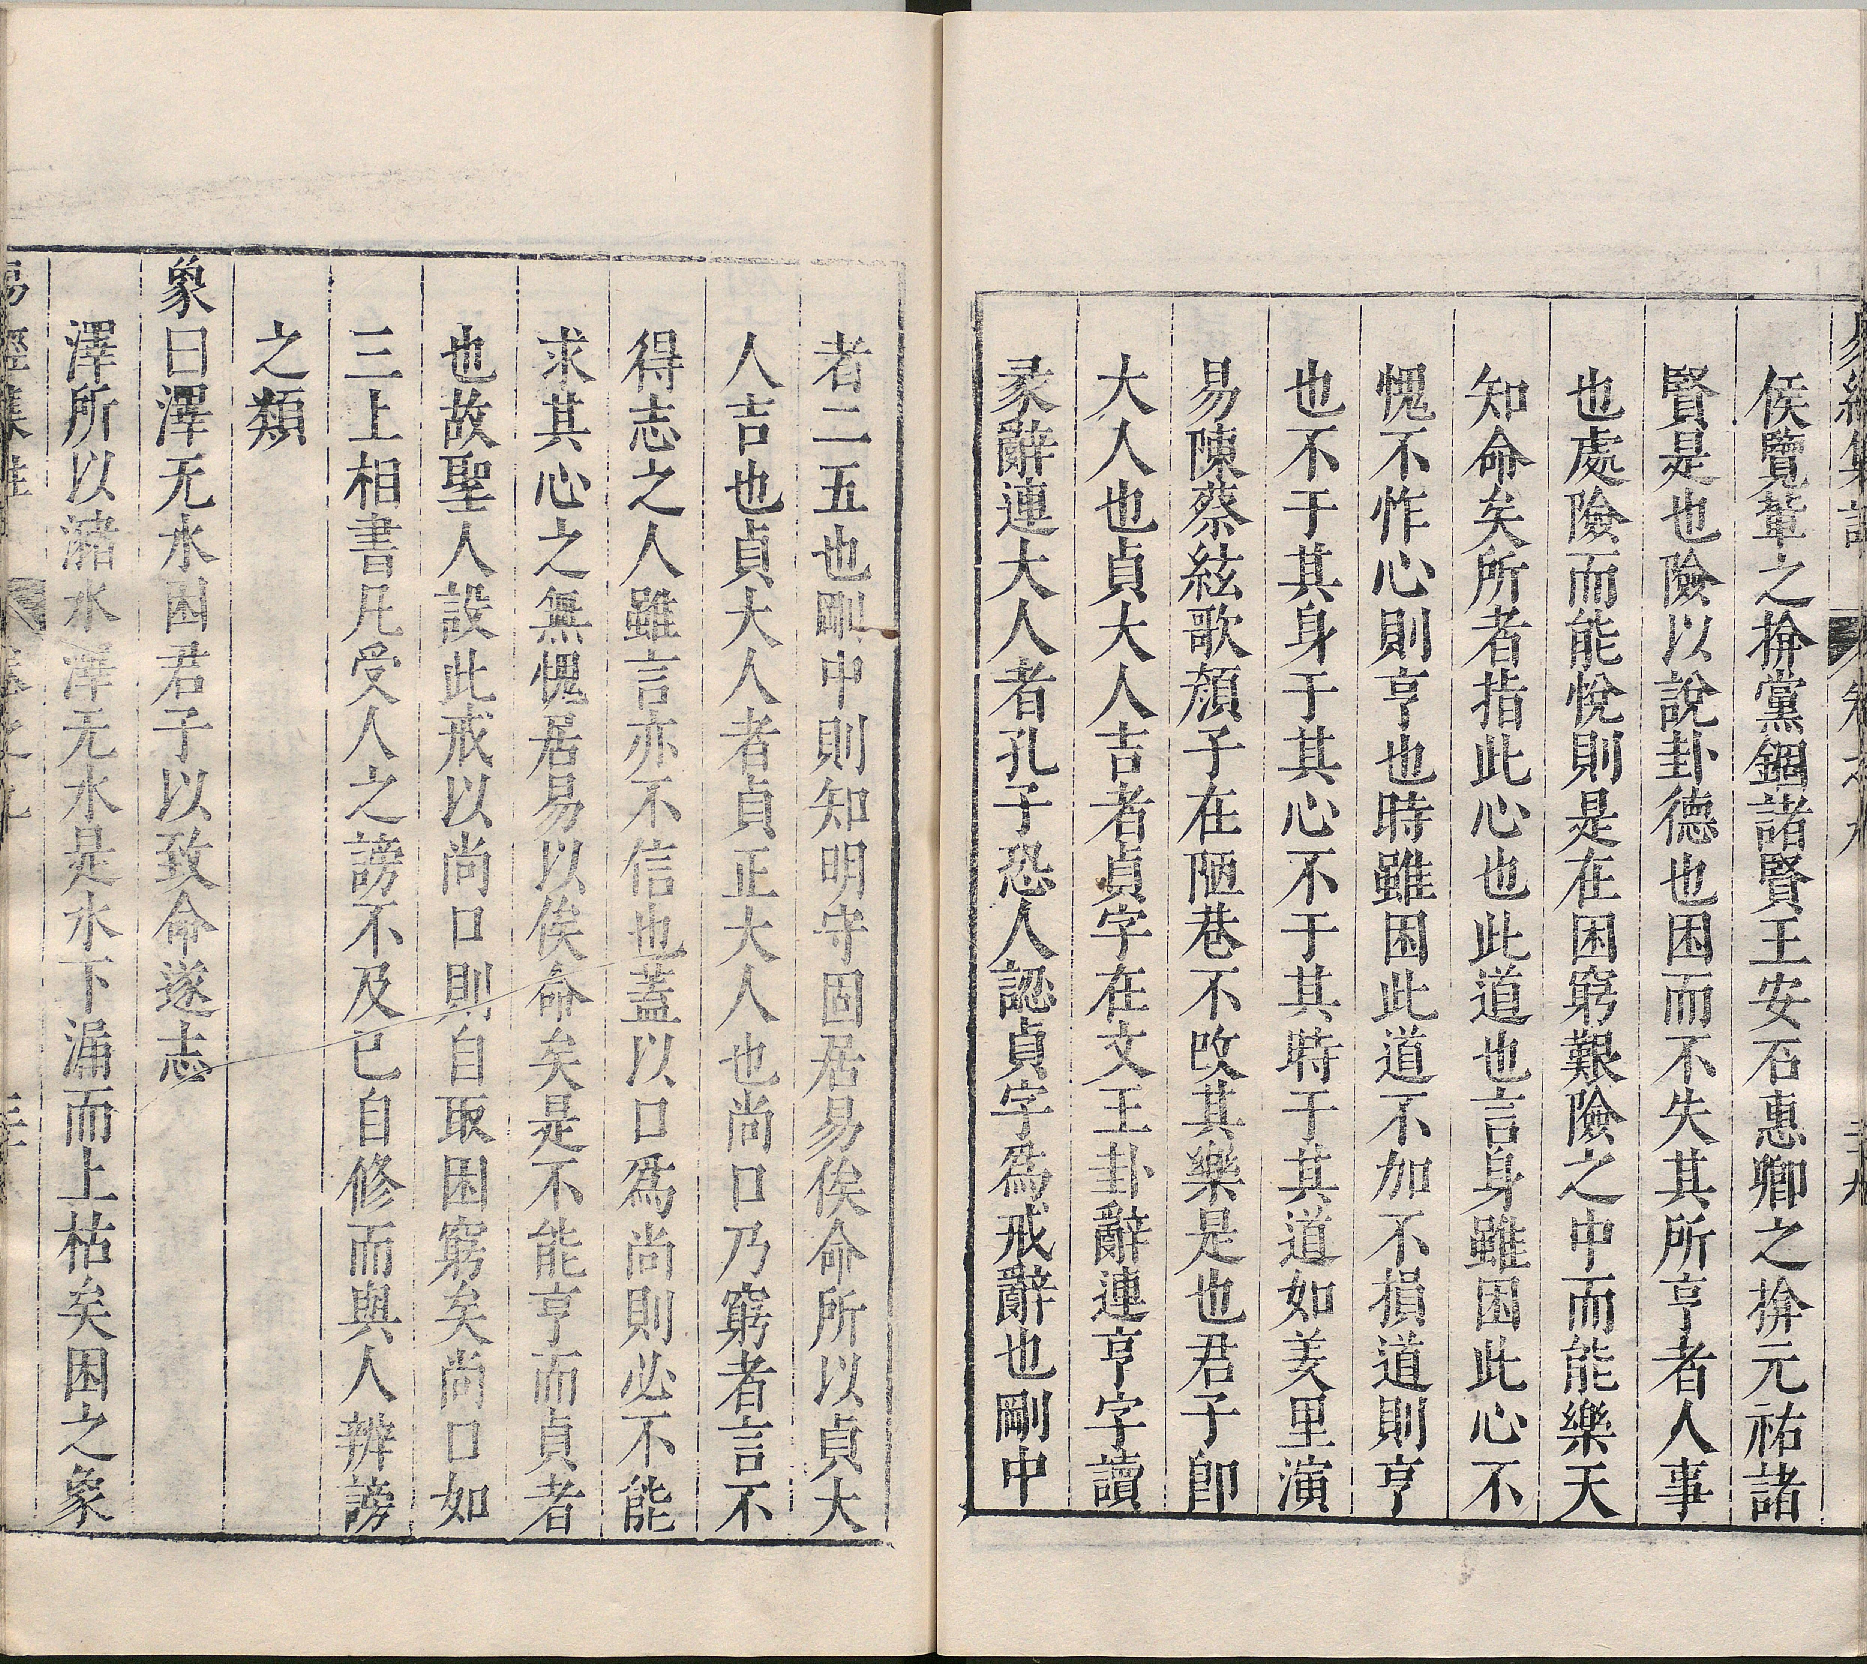 侯覽軰之揜黨錮諸賢王安石惠卿之揜元祐諸
賢是也險以說卦德也困而不失其所亨者人事
也處險而能悅則是在困窮艱險之中而能樂天
知命矣所者指此心也此道也言身雖困此心不
愧不怍心則亨也時雖困此道不加不損道則亨
也不于其身于其心不于其時于其道如羑里演
易陳蔡絃歌顏子在陋巷不改其樂是也君子卽
大人也貞大人吉者貞字在文王卦辭連亨字讀
彖辭連大人者孔子恐人認貞字爲戒辭也剛中
者二五也剛中則知明守固居易俟命所以貞大
人吉也貞大人者貞正大人也尚口乃窮者言不
得志之人雖言亦不信也蓋以口爲尚則必不能
求其心之無愧居易以俟命矣是不能亨而貞者
也故聖人設此戒以尚口則自取困窮矣尚口如
三上相書凡受人之謗不及已自修而與人辨謗
之類
象曰澤无水困君子以致命遂志
澤所以瀦水澤无水是水下漏而上枯矣困之象